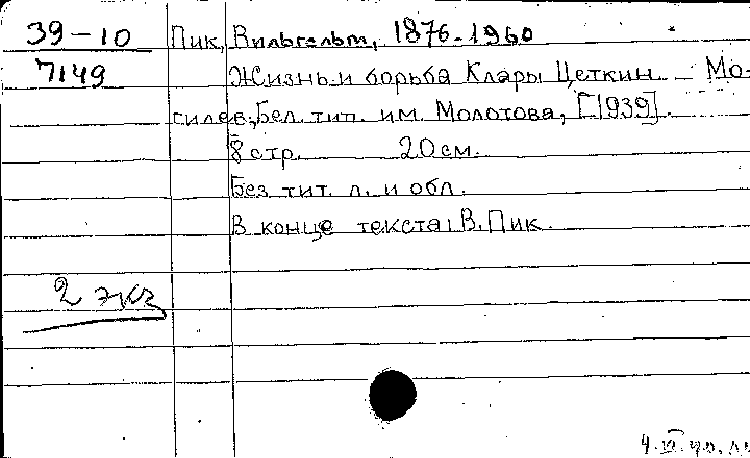 39-10 Пик, Вильгельм, 1876-1960
7149 Жизнь и борьба Клары Цеткин. - Мо-
гилев, Бел. тип. им. Молотова, [1939].
8 стр. 20 см.
Без тит. л. и обл.
В конце текста: В. Пик.
2 экз